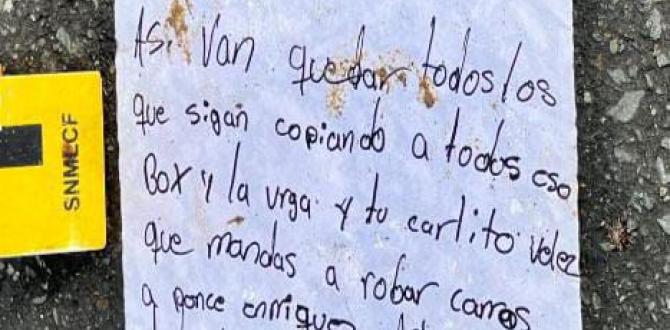 Así Van quedar todos los
que sigan copiando a todos eso
Box y la urga y tu carlito velez
que mandas a robar carros
a ponce enrrique
SNMLCF